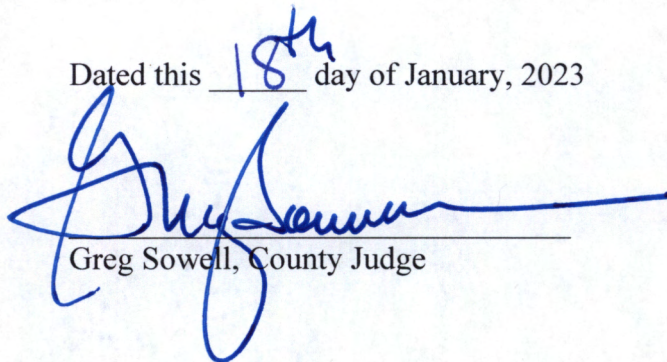 Dated this 18th day of January, 2023
Greg Sowell
Greg Sowell, County Judge